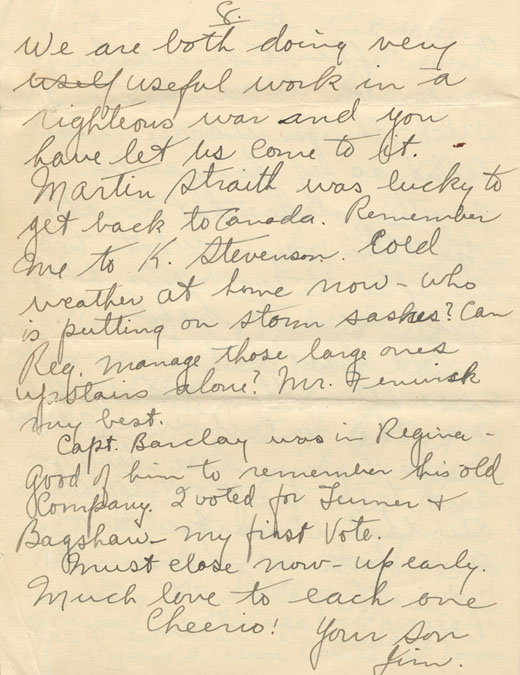 8.
We are both doing very
useful work in a
righteous war and you
have let us come to it.
Martin Straith was lucky to
get back to Canada. Remember
me to K. Stevenson. Cold
weather at home now - who
is putting on storm sashes? Can
Reg. manage those large ones
upstairs alone? Mr. Fenwick
my best.
Capt. Barclay was in Regina -
Good of him to remember his old
Company. I voted for Turner &
Bagshaw - my first Vote.
Must close now - up early.
Much love to each one
Cheerio! Your son
Jim.